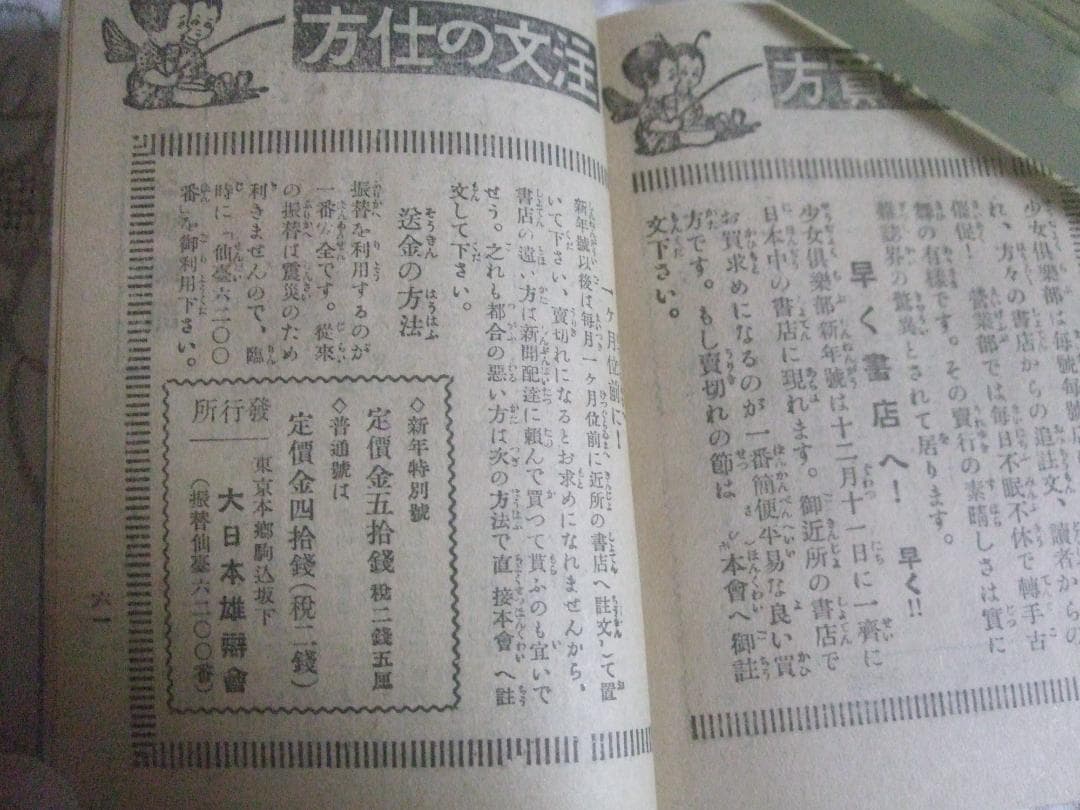 方買
少女倶樂部は毎號毎
れ、方々の書店からの追註文、讀者からの
催促！　營業部では毎日不眠不休で轉手古
舞の有樣です。その賣行の素晴しさは實に
雜誌界の驚異とされて居ります。
早く書店へ！早く!!
少女倶樂部新年號は十二月十一日に一齊に
日本中の書店に現れます。御近所の書店で
お買求めになるのが一番簡便平易な良い買
方です。もし賣切れの節は本會へ御註
文下さい。
方仕の文注
一ヶ月位前に！
新年號以後は毎月一ヶ月位前に近所の書店へ註文して置
いて下さい、賣切れになるとお求めになれませんから。
書店の遠い方は新聞配達に頼んで買つて貰ふのも宜いで
せう。之れも都合の惡い方は次の方法で直接本會へ註
文して下さい。
送金の方法
振替を利用するのが
一番安全です。從來
の振替は震災のため
利きませんので、臨
時に「仙臺六二〇〇
番」を御利用下さい。
◇新年特別號
定價金五拾錢　税二錢五厘
◇普通號は
定價金四拾錢（税二錢）
發行所
東京本郷駒込坂下
大日本雄辯會
（振替仙臺六二〇〇番）
六一